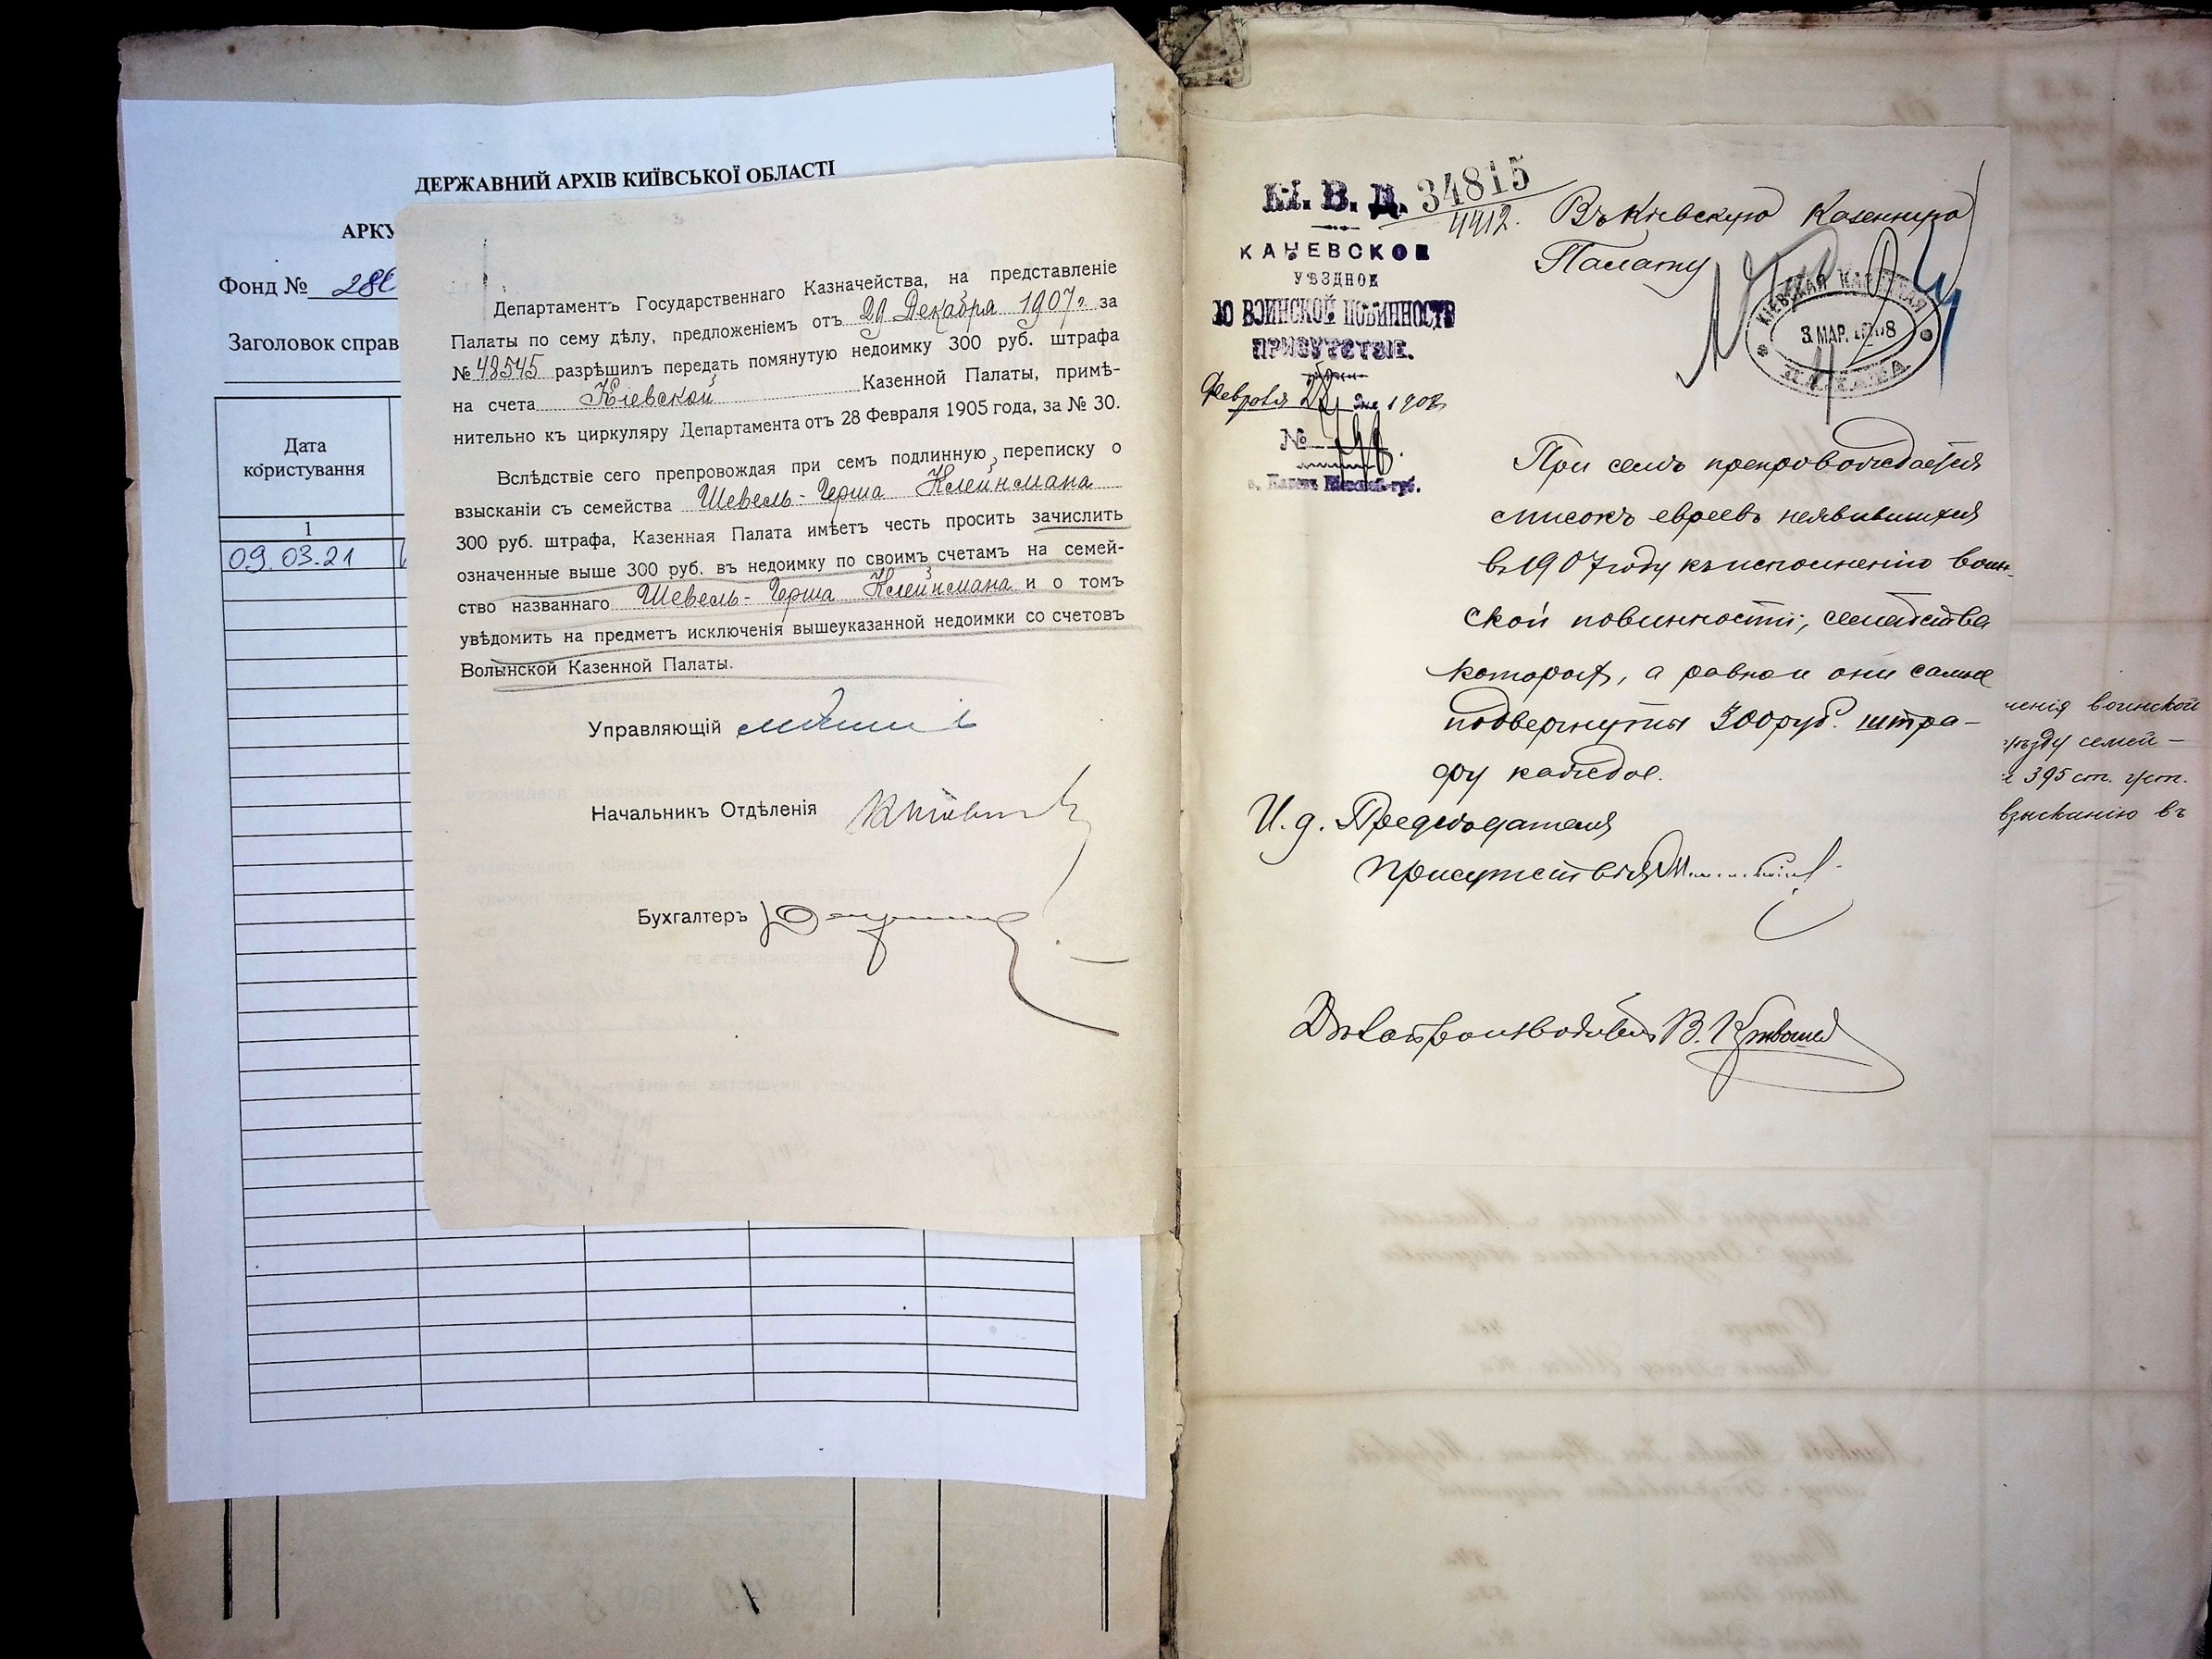 ДЕРЖАВНИЙ АРХІВ КИЇВСЬКОЇ ОБЛАСТІ
АРКУ
Фонд № 280
Заголовок справ
Дата
користування
1
09.03.21
Департаментъ Государственнаго Казначейства, на представленіе
Палаты по сему дѣлу, предложеніемъ отъ 29 Декабря 1907 г. за
№ 48545 разрѣшилъ передать помянутую недоимку 300 руб. штрафа
на счета Кіевской Казенной Палаты, примѣ-
нительно къ циркуляру Департамента отъ 28 Февраля 1905 года, за № 30.
Вслѣдствіе сего препровождая при семъ подлинную переписку о
взысканіи съ семейства Шевель-Герша Клейнсмана
300 руб. штрафа, Казенная Палата имѣетъ честь просить зачислить
означенные выше 300 руб. въ недоимку по своимъ счетамъ на семей-
ство названнаго Шевель-Герша Клейнсмана и о томъ
увѣдомить на предметъ исключенія вышеуказанной недоимки со счетовъ
Волынской Казенной Палаты.
Управляющій
Начальникъ Отдѣленія
Бухгалтеръ
М. В. Д. 34815
4412.
КАНЕВСКОЕ
УѢЗДНОЕ
ПО ВОИНСКОЙ ПОВИННОСТИ
ПРИСУТСТВІЕ.
Февраля 28 дня 1908
№
г. Каневъ Кіевской губ.
Въ Кіевскую Казенную
Палату
КІЕВСКАЯ КАЗЕННАЯ
3 МАР. 1908
ПАЛАТА
При семъ препровождается
списокъ евреевъ неявившихся
въ 1907 году къ исполненію воин-
ской повинности, семейства
которыхъ, а равно и они самые
подвергнуты 300 руб. штра-
фу каждое.
И. д. Председателя
Присутствія
Дѣлопроизводитель В.
ненія воинской
уѣзду семей-
395 ст. уст.
взысканію въ